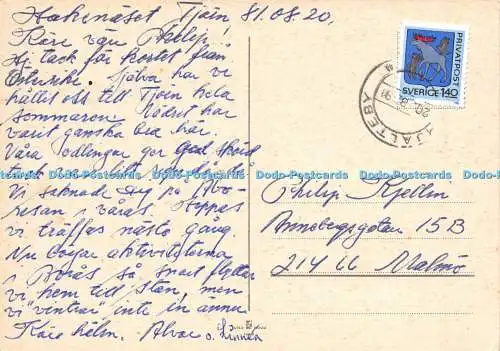 Hakenäset Tjörn, 81.08.20,
Käre vän Philip!
Hj tack för kortet från
Österrike. Själva har vi
hållet oss till Tjörn hela
sommaren. Vädret har
varit ganska bra här.
Våra odlingar ger god skörd
Vi saknade dig på
resan i våras. Hoppas
vi träffas nästa gång.
Nu börjar aktiviteterna
i Borås så snart flyttar
vi hem till stan, men
vi "ventrar" inte in ännu
Kära hälsn. Alvar o. Linnéa
PRIVATPOST
SVERIGE 140
HJÄLTEBY
Philip Kjellin
Annebergsgatan 15B
214 66 Malmö
Dodo-Postcards Dodo-Postcards Dodo-Postcards Dodo-Postcards